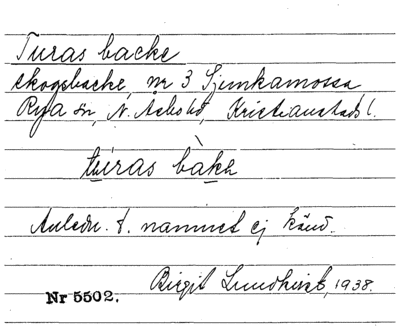 Turas backe
skogsbacke, nr 3 Sjunkamossa
Rya sn, N. Åsbo hd, Kristianstads l.
tu̲ras bàkɐ
Anledn. t. namnet ej känd.
Birgit Lundkvist, 1938.
Nr 5502.